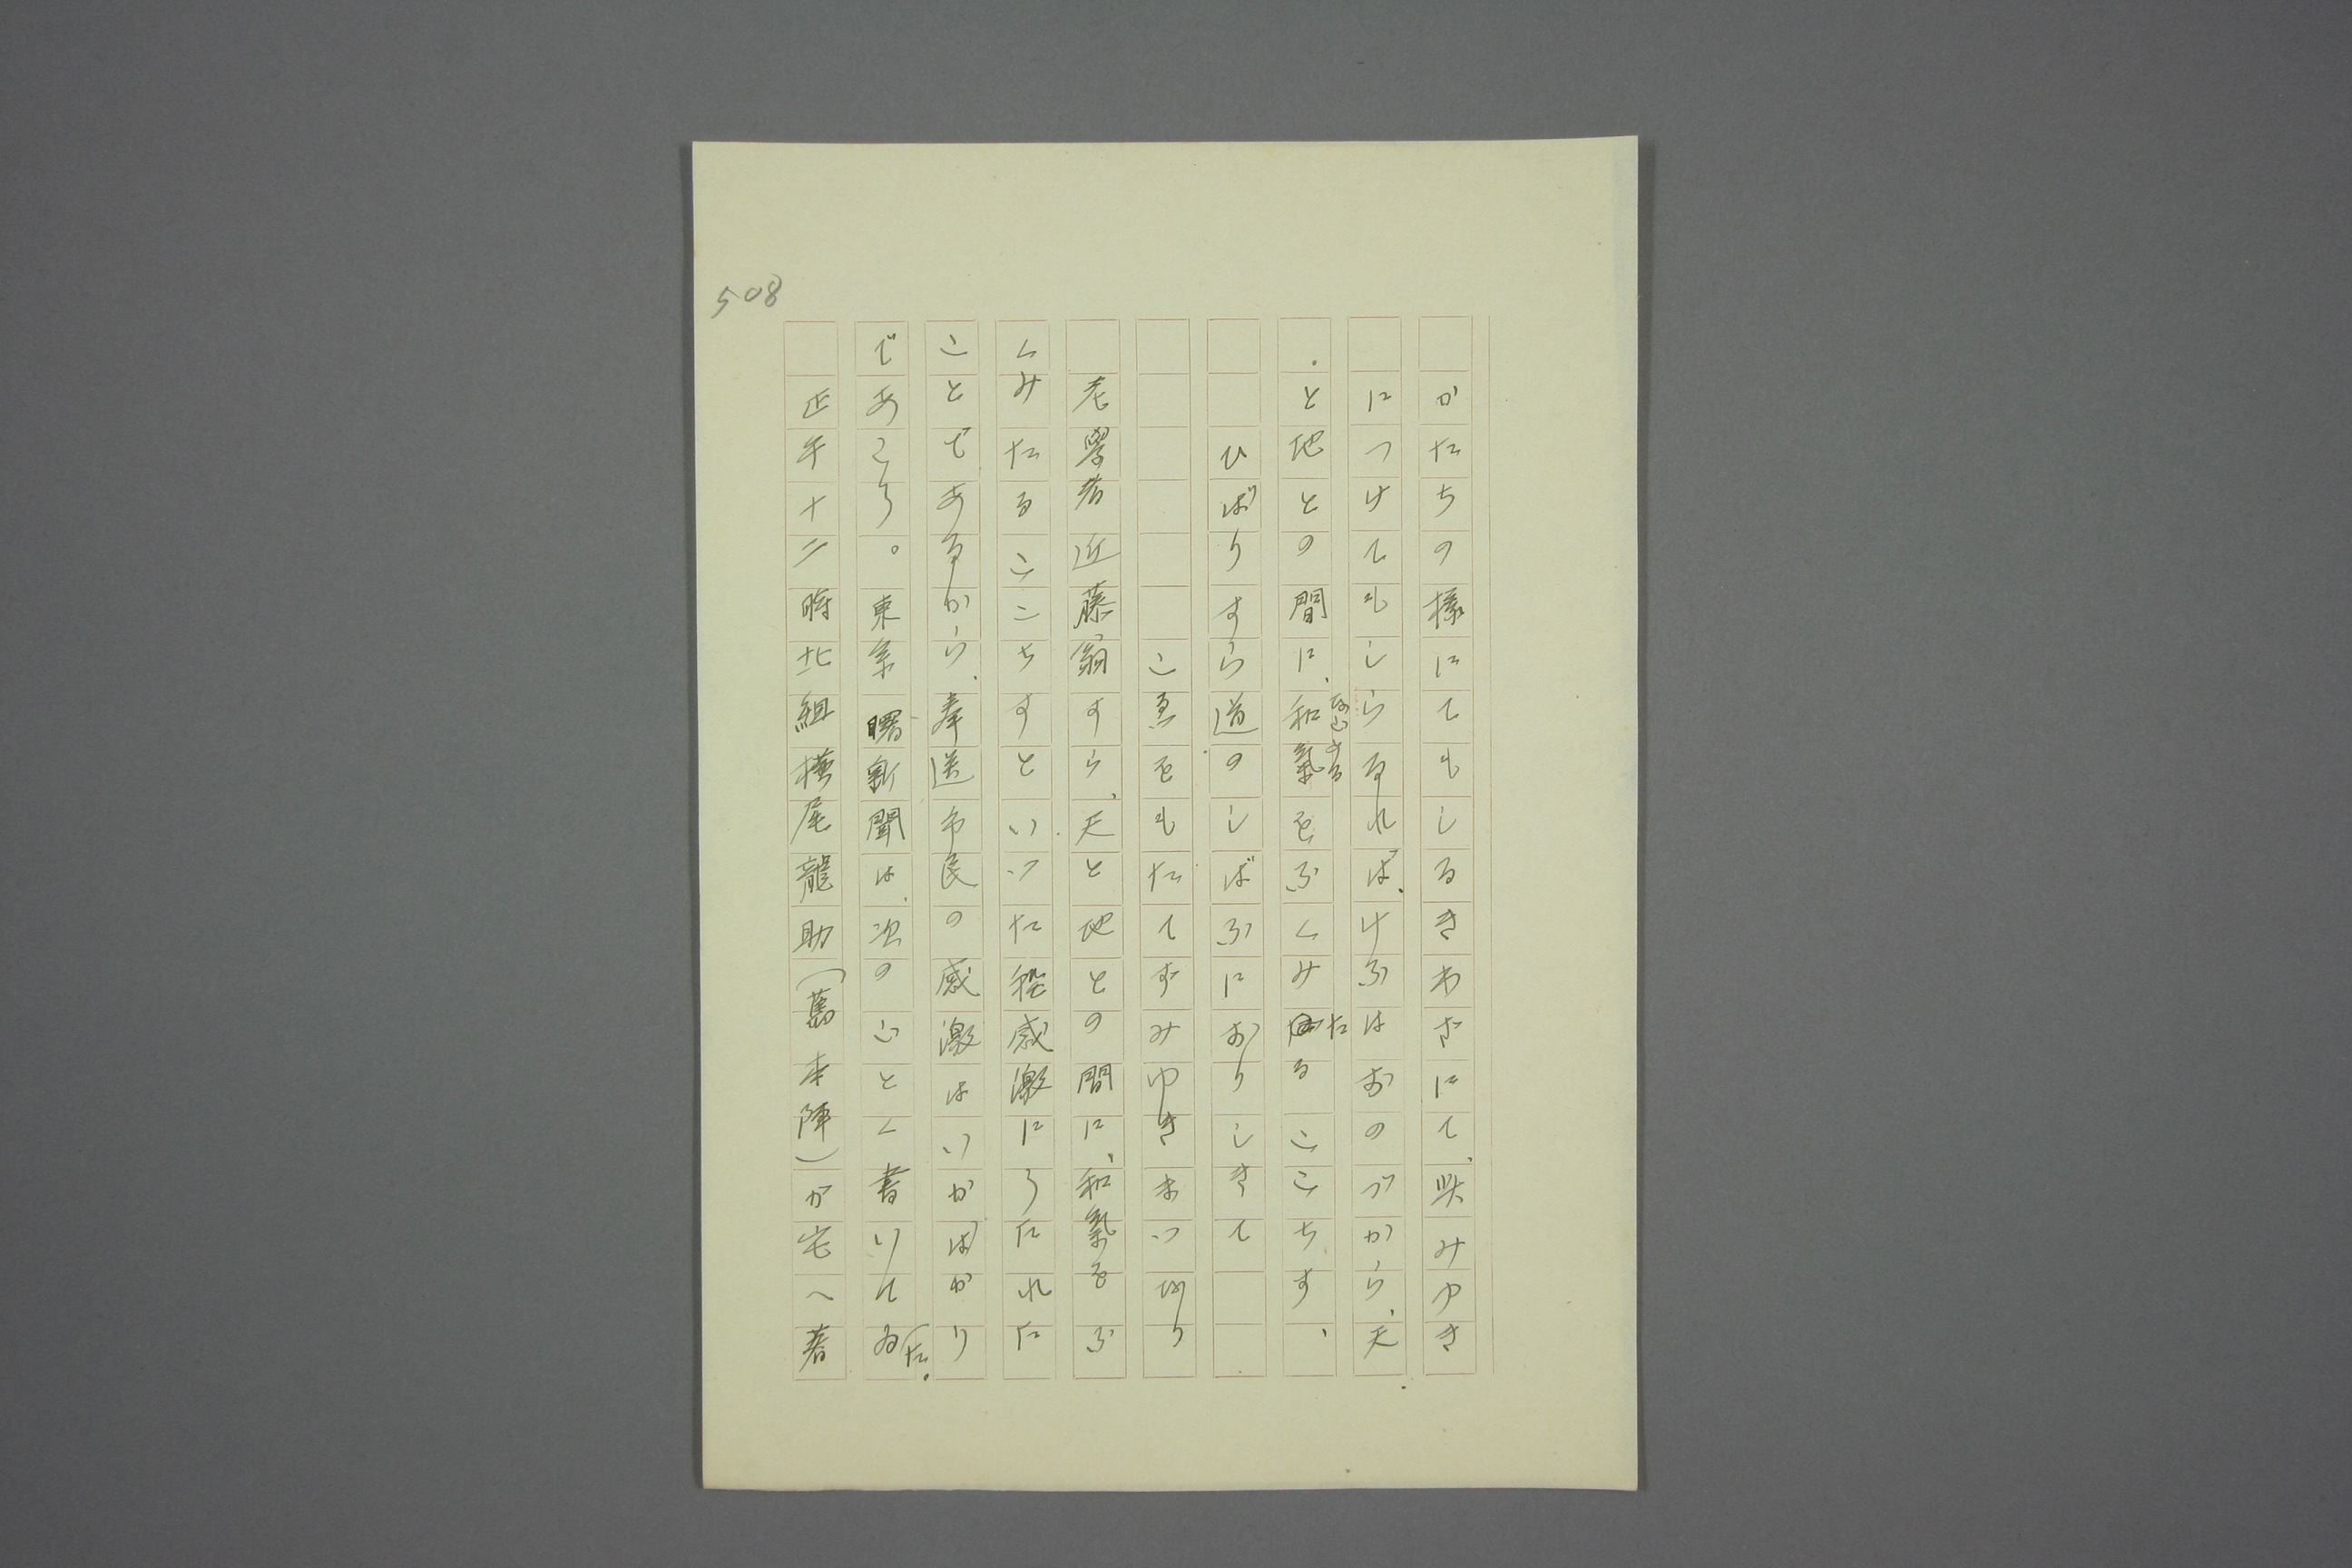 かたちの樣にてもしるきわざにて、此みゆき
につけてもしらるれば、けふはおのづから、天
と地との間に、和氣をふくみたるこゝちす、
ひばりすら道のしばふにおりしきて
こゑをもたてずみゆきまつめり
老學者近藤翁すら、天と地との間に、和氣をふ
くみたるこゝちすといつた程感激にうたれた
ことであるから、奉送市民の感激はいかばかり
であらう。東京曙新聞は、次のごとく書いてゐた。
正午十二時北組横尾龍助(舊本陣)が宅へ着
508